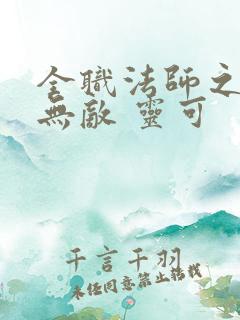 全職法師之
無敵 靈可
千言千羽
未經同意禁止轉載